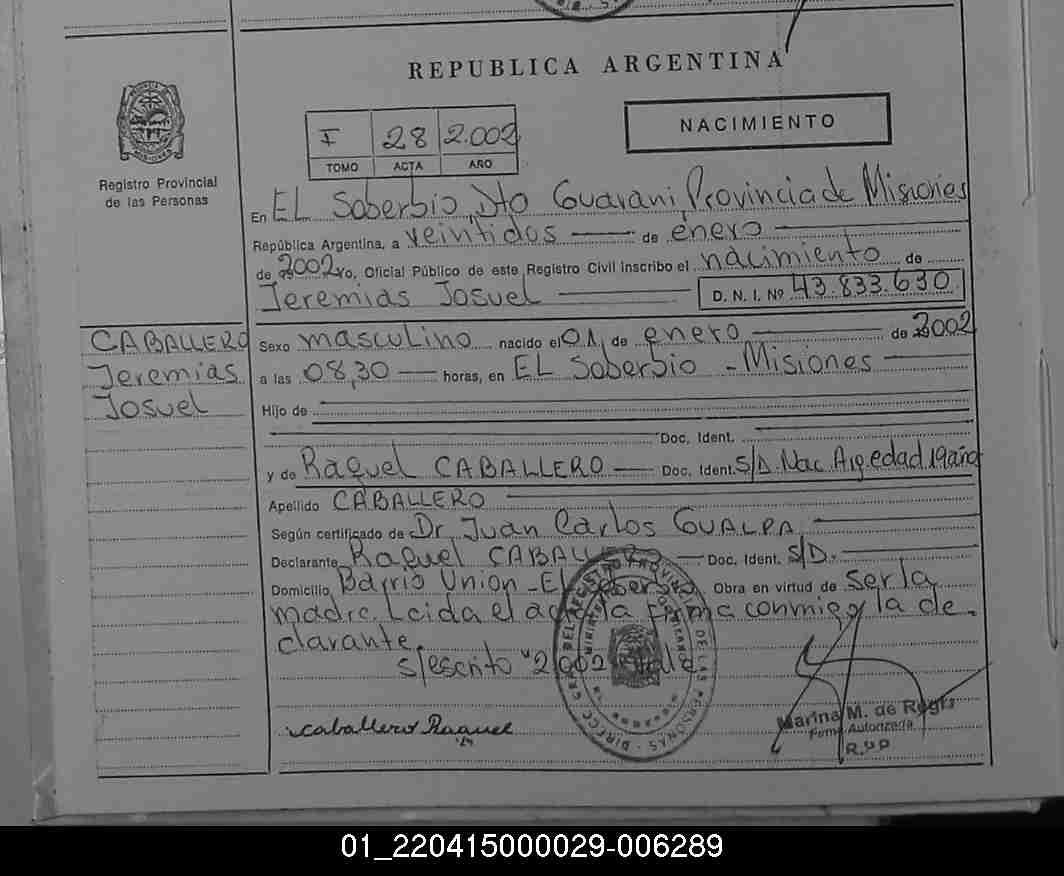 REPUBLICA ARGENTINA
NACIMIENTO
I 28 2.002
TOMO ACTA AÑO
Registro Provincial
de las Personas
En EL Soberbio, Dto Guarani, Provincia de Misiones
República Argentina, a veintidos de enero
de 2002 Yo, Oficial Público de este Registro Civil inscribo el nacimiento de
Jeremias Josuel D. N. I. Nº 43.833.630
CABALLERO
Jeremias
Josuel
Sexo masculino nacido el 01 de enero de 2002
a las 08,30 horas, en EL Soberbio - Misiones
Hijo de
Doc. Ident.
y de Raquel CABALLERO Doc. Ident. S/D. Nac. Arg. edad 19 años
Apellido CABALLERO
Según certificado de Dr. Juan Carlos GUALPA
Declarante Raquel CABALLERO Doc. Ident. S/D.
Domicilio Barrio Union - El Soberbio Obra en virtud de ser la
madre. Leida el acta la firma conmigo la de-
clarante.
s/escrito "2002" Vale
caballero Raquel
Marina M. de Regis
Firma Autorizada
R.P.
01_220415000029-006289